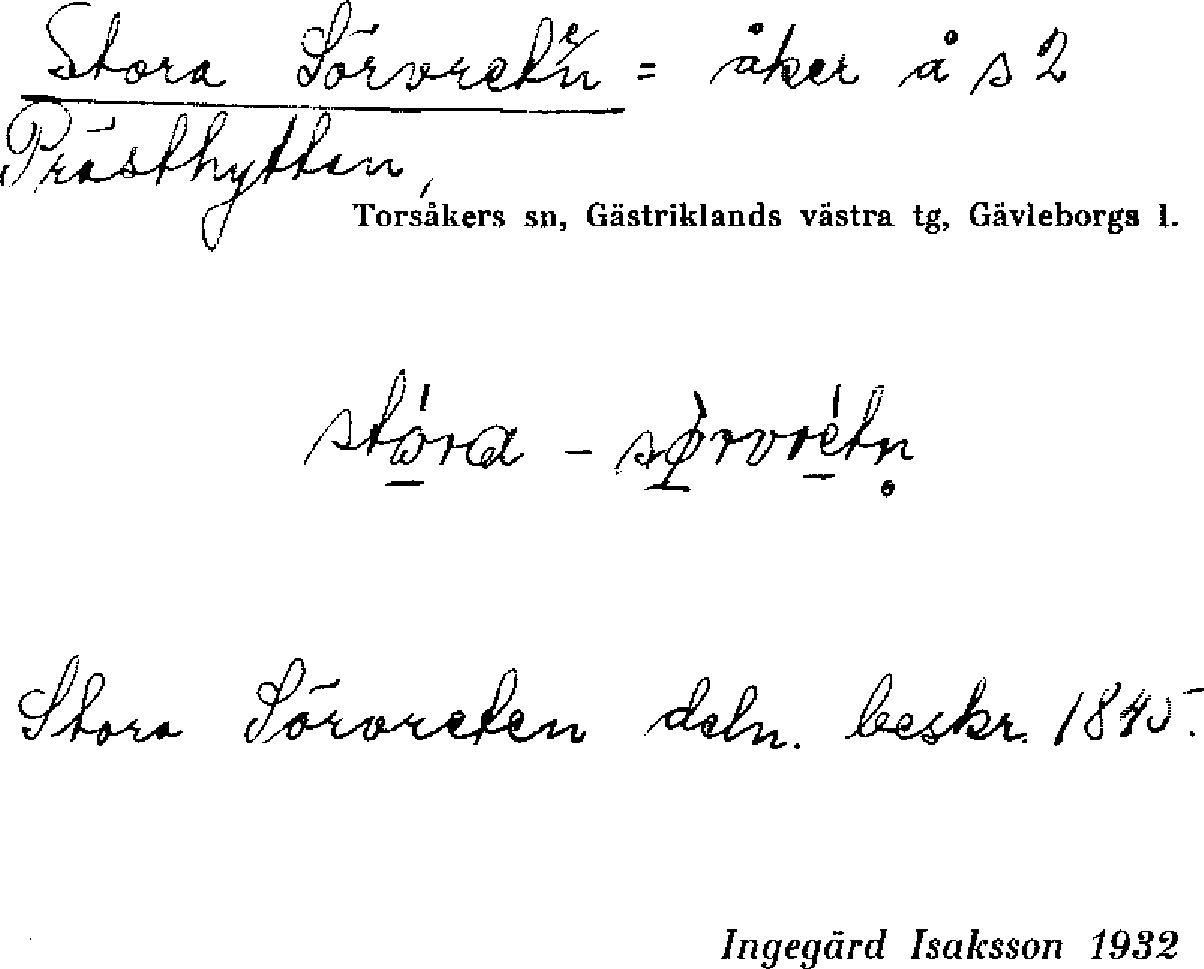 Stora Sörvreten = åker å s 2
Prästhyttan,
Torsåkers sn, Gästriklands västra tg, Gävleborgs l.
stóra - sø̀rvrétn̥
Stora Sörvreten deln. beskr. 1845.
Ingegärd Isaksson 1932